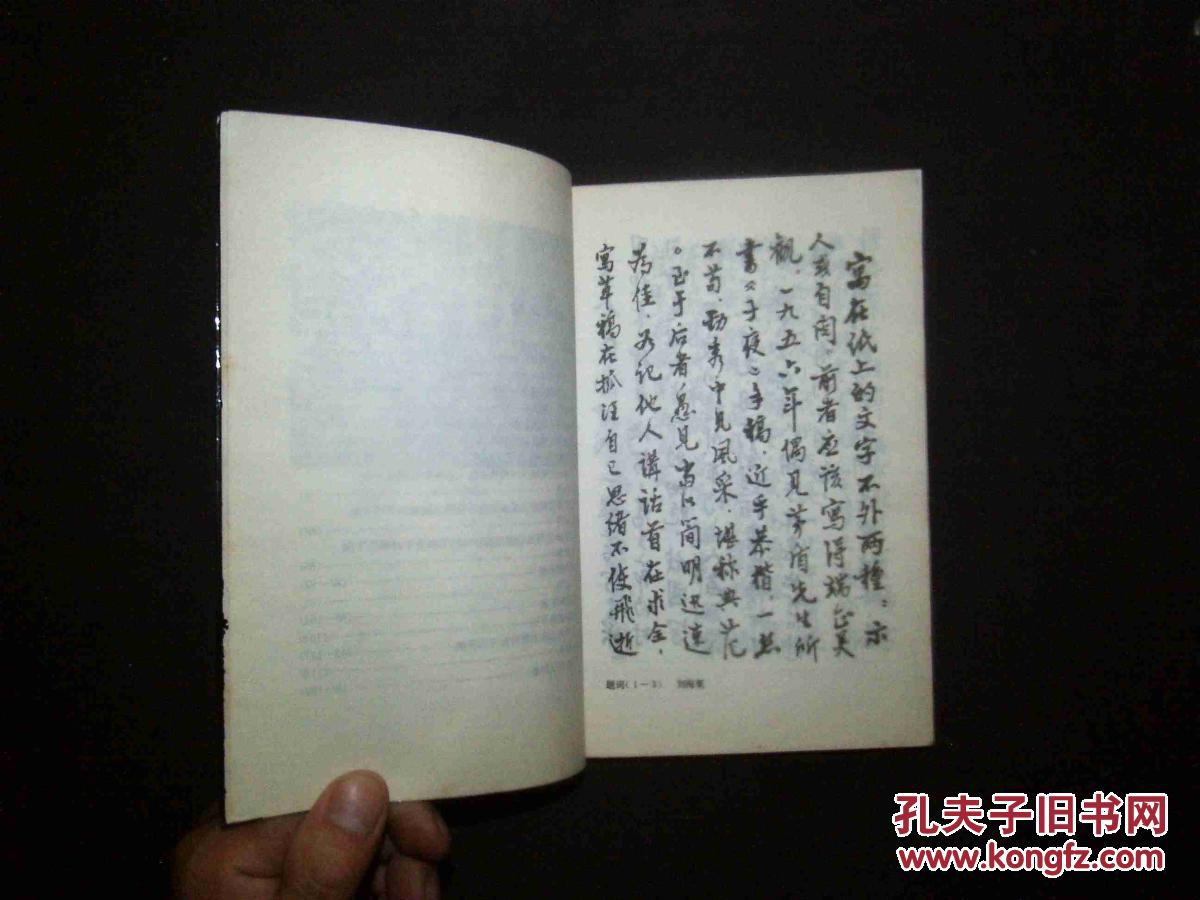 寫在纸上的文字不外两種：示
人或自阅。前者应该寫得端正美
觀，一九五六年偶见茅盾先生所
書《子夜》手稿，近乎恭楷，一丝
不苟，勁秀中见风采，堪称典范
。至于后者，愚见当以简明迅速
為佳，记他人講話首在求全，
寫草稿在抓住自己思绪不使飛逝
题词(1—3) 刘海粟
孔夫子旧书网
www.kongfz.com